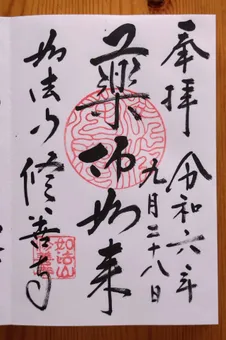 奉拝
令和六年
九月二十八日
薬師如来
如法山修善寺
如法山